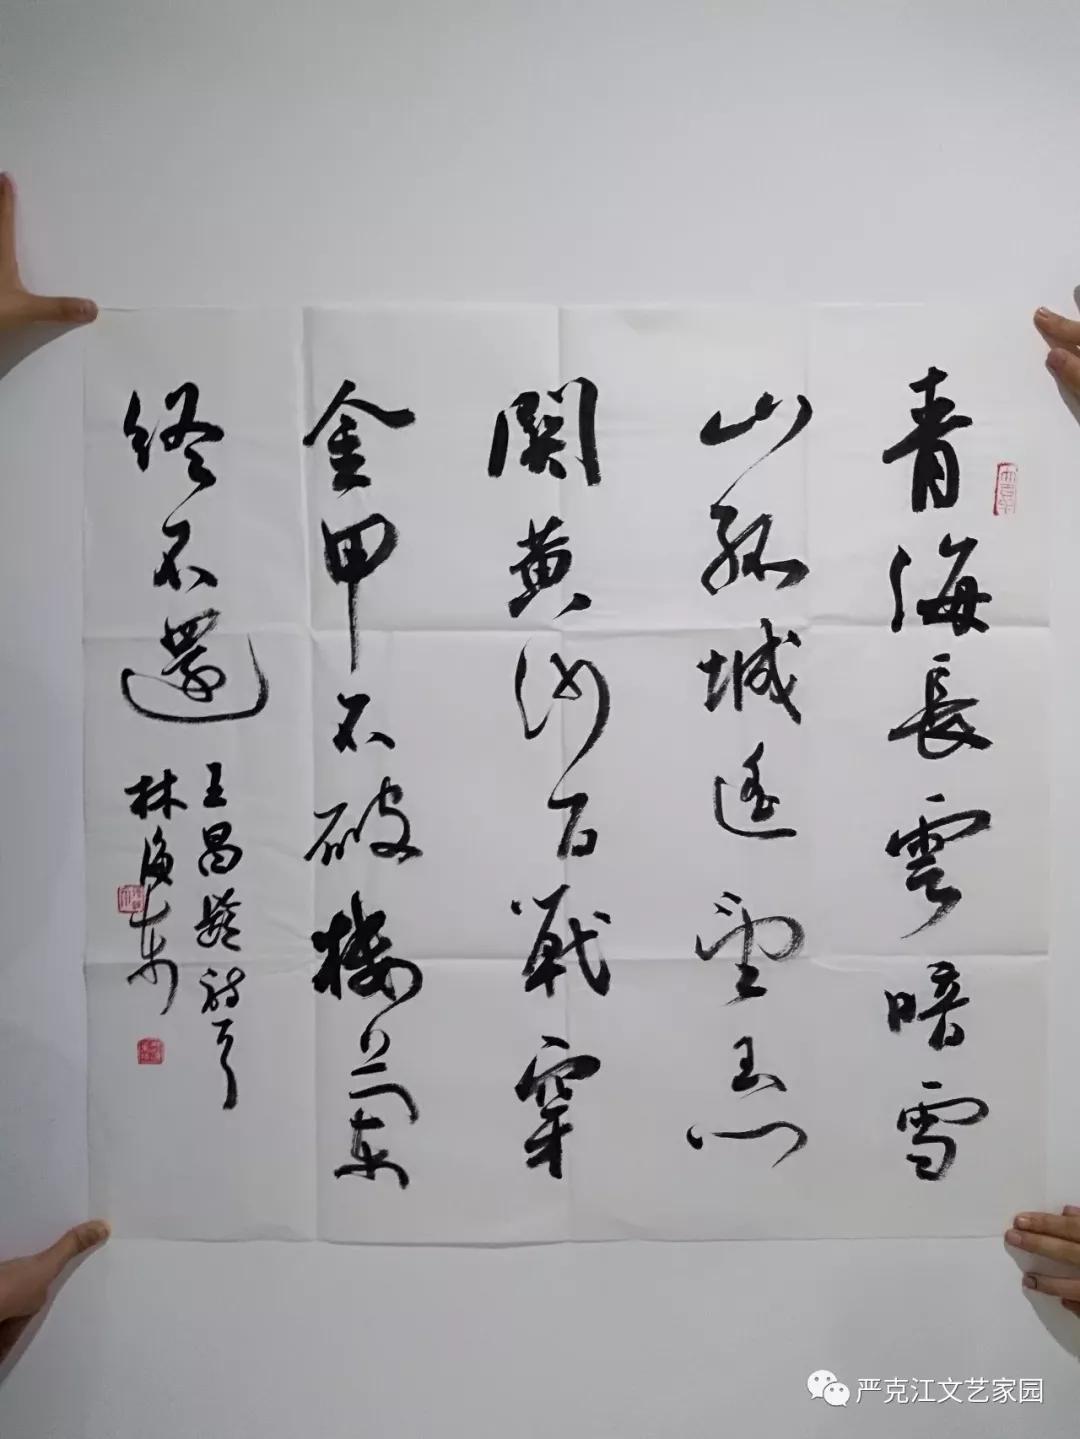 青海長雲暗雪
山孤城遥望玉門
関黄河百戰穿
金甲不破樓蘭
終不還
王昌齡詩
林海东
严克江文艺家园